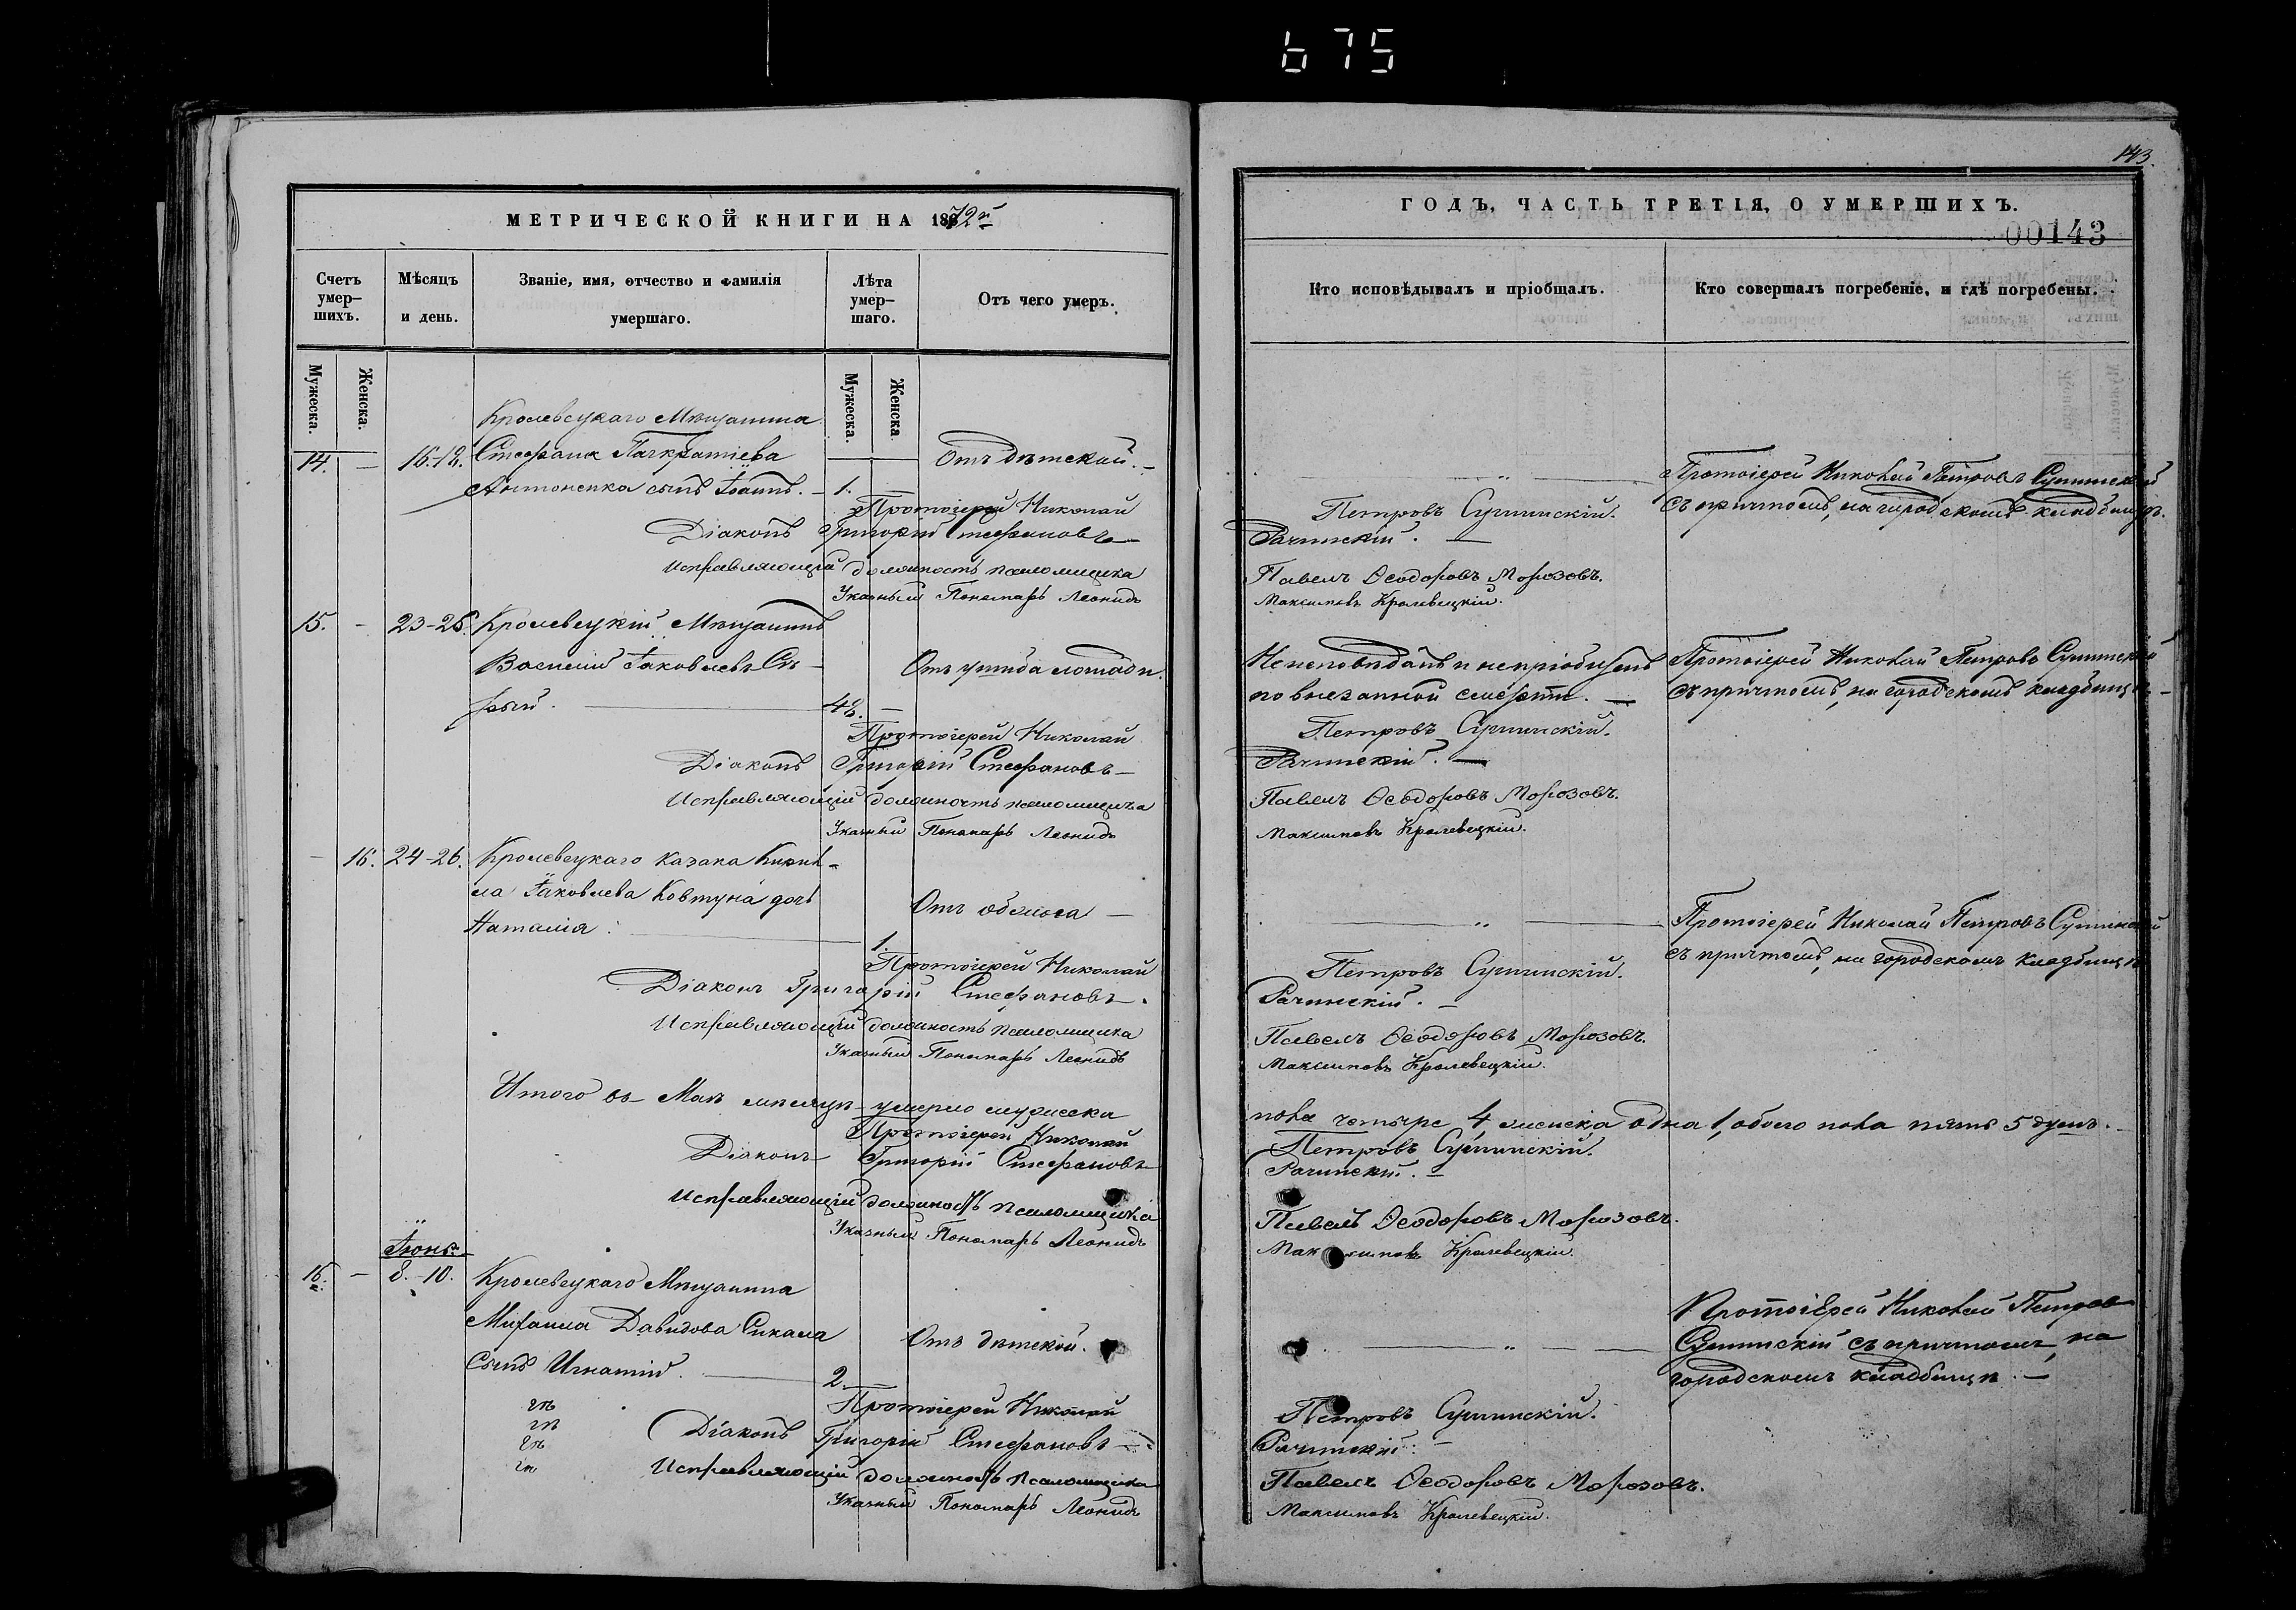 675
143.
МЕТРИЧЕСКОЙ КНИГИ НА 1872й
ГОДЪ, ЧАСТЬ ТРЕТІЯ, О УМЕРШИХЪ.
00143
Счетъ умер-шихъ.
Мѣсяцъ и день.
Званіе, имя, отчество и фамилія умершаго.
Лѣта умер-шаго.
Отъ чего умеръ.
Кто исповѣдывалъ и пріобщалъ.
Кто совершалъ погребеніе, и гдѣ погребены.
Мужеска.
Женска.
Мужеска.
Женска.
Кролевецкаго Мѣщанина
14. — 16-18. Стефана Панкратіева
Антоненка сынъ Іоаннъ. — 1. — Отъ дѣтской. —
Протоіерей Николай Петровъ
съ причтомъ, на городскомъ кладбищѣ.
Протоіерей Николай Петровъ
Діаконъ Григорій Стефановъ Рачинскій. —
Исправляющій должность псаломщика Павелъ Ѳеодоровъ Морозовъ.
Указный Пономарь Леонидъ Максимовъ Кролевецкій.
15. — 23-26. Кролевецкій Мѣщанинъ
Василій Іаковлевъ Сѣ-
рый. — 48. — Отъ ушиба лошади.
Неисповѣданъ и непріобщенъ
по внезапной смерти. —
Протоіерей Николай Петровъ
съ причтомъ, на городскомъ кладбищѣ —
Протоіерей Николай Петровъ
Діаконъ Григорій Стефановъ Рачинскій. —
Исправляющій должность псаломщика Павелъ Ѳеодоровъ Морозовъ.
Указный Пономарь Леонидъ Максимовъ Кролевецкій.
— 16. 24-26. Кролевецкаго казака Кирил-
ла Іаковлева Ковтуна дочь
Наталія. — 1. Отъ —
Протоіерей Николай Петровъ
съ причтомъ, на городскомъ кладбищѣ
Протоіерей Николай Петровъ
Діаконъ Григорій Стефановъ Рачинскій. —
Исправляющій должность псаломщика Павелъ Ѳеодоровъ Морозовъ.
Указный Пономарь Леонидъ Максимовъ Кролевецкій.
Итого въ Маѣ мѣсяцѣ умерло мужеска пола четыре 4, женска одна 1, обоего пола пять 5 душъ.
Протоіерей Николай Петровъ
Діаконъ Григорій Стефановъ Рачинскій. —
Исправляющій должность псаломщика Павелъ Ѳеодоровъ Морозовъ.
Указный Пономарь Леонидъ Максимовъ Кролевецкій.
Іюнь.
16. — 8-10. Кролевецкаго Мѣщанина
Михаила Давидова Сикала
сынъ Игнатій. — 2. — Отъ дѣтской.
Протоіерей Николай Петровъ
съ причтомъ, на
городскомъ кладбищѣ. —
Протоіерей Николай Петровъ
Діаконъ Григорій Стефановъ Рачинскій. —
Исправляющій должность псаломщика Павелъ Ѳеодоровъ Морозовъ.
Указный Пономарь Леонидъ Максимовъ Кролевецкій.